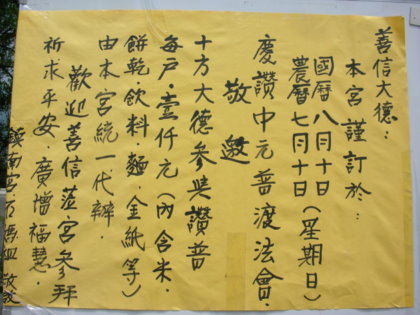 善信大德：
本宮謹訂於：
國曆八月十日(星期日)
農曆七月十日
慶讚中元普渡法會．
敬邀
十方大德參與讚普
每戶．壹仟元(內含米．
餅乾．飲料．麵．金紙等)
由本宮統一代辦．
歡迎善信蒞宮參拜
祈求平安．廣增福慧．
鎮南宮